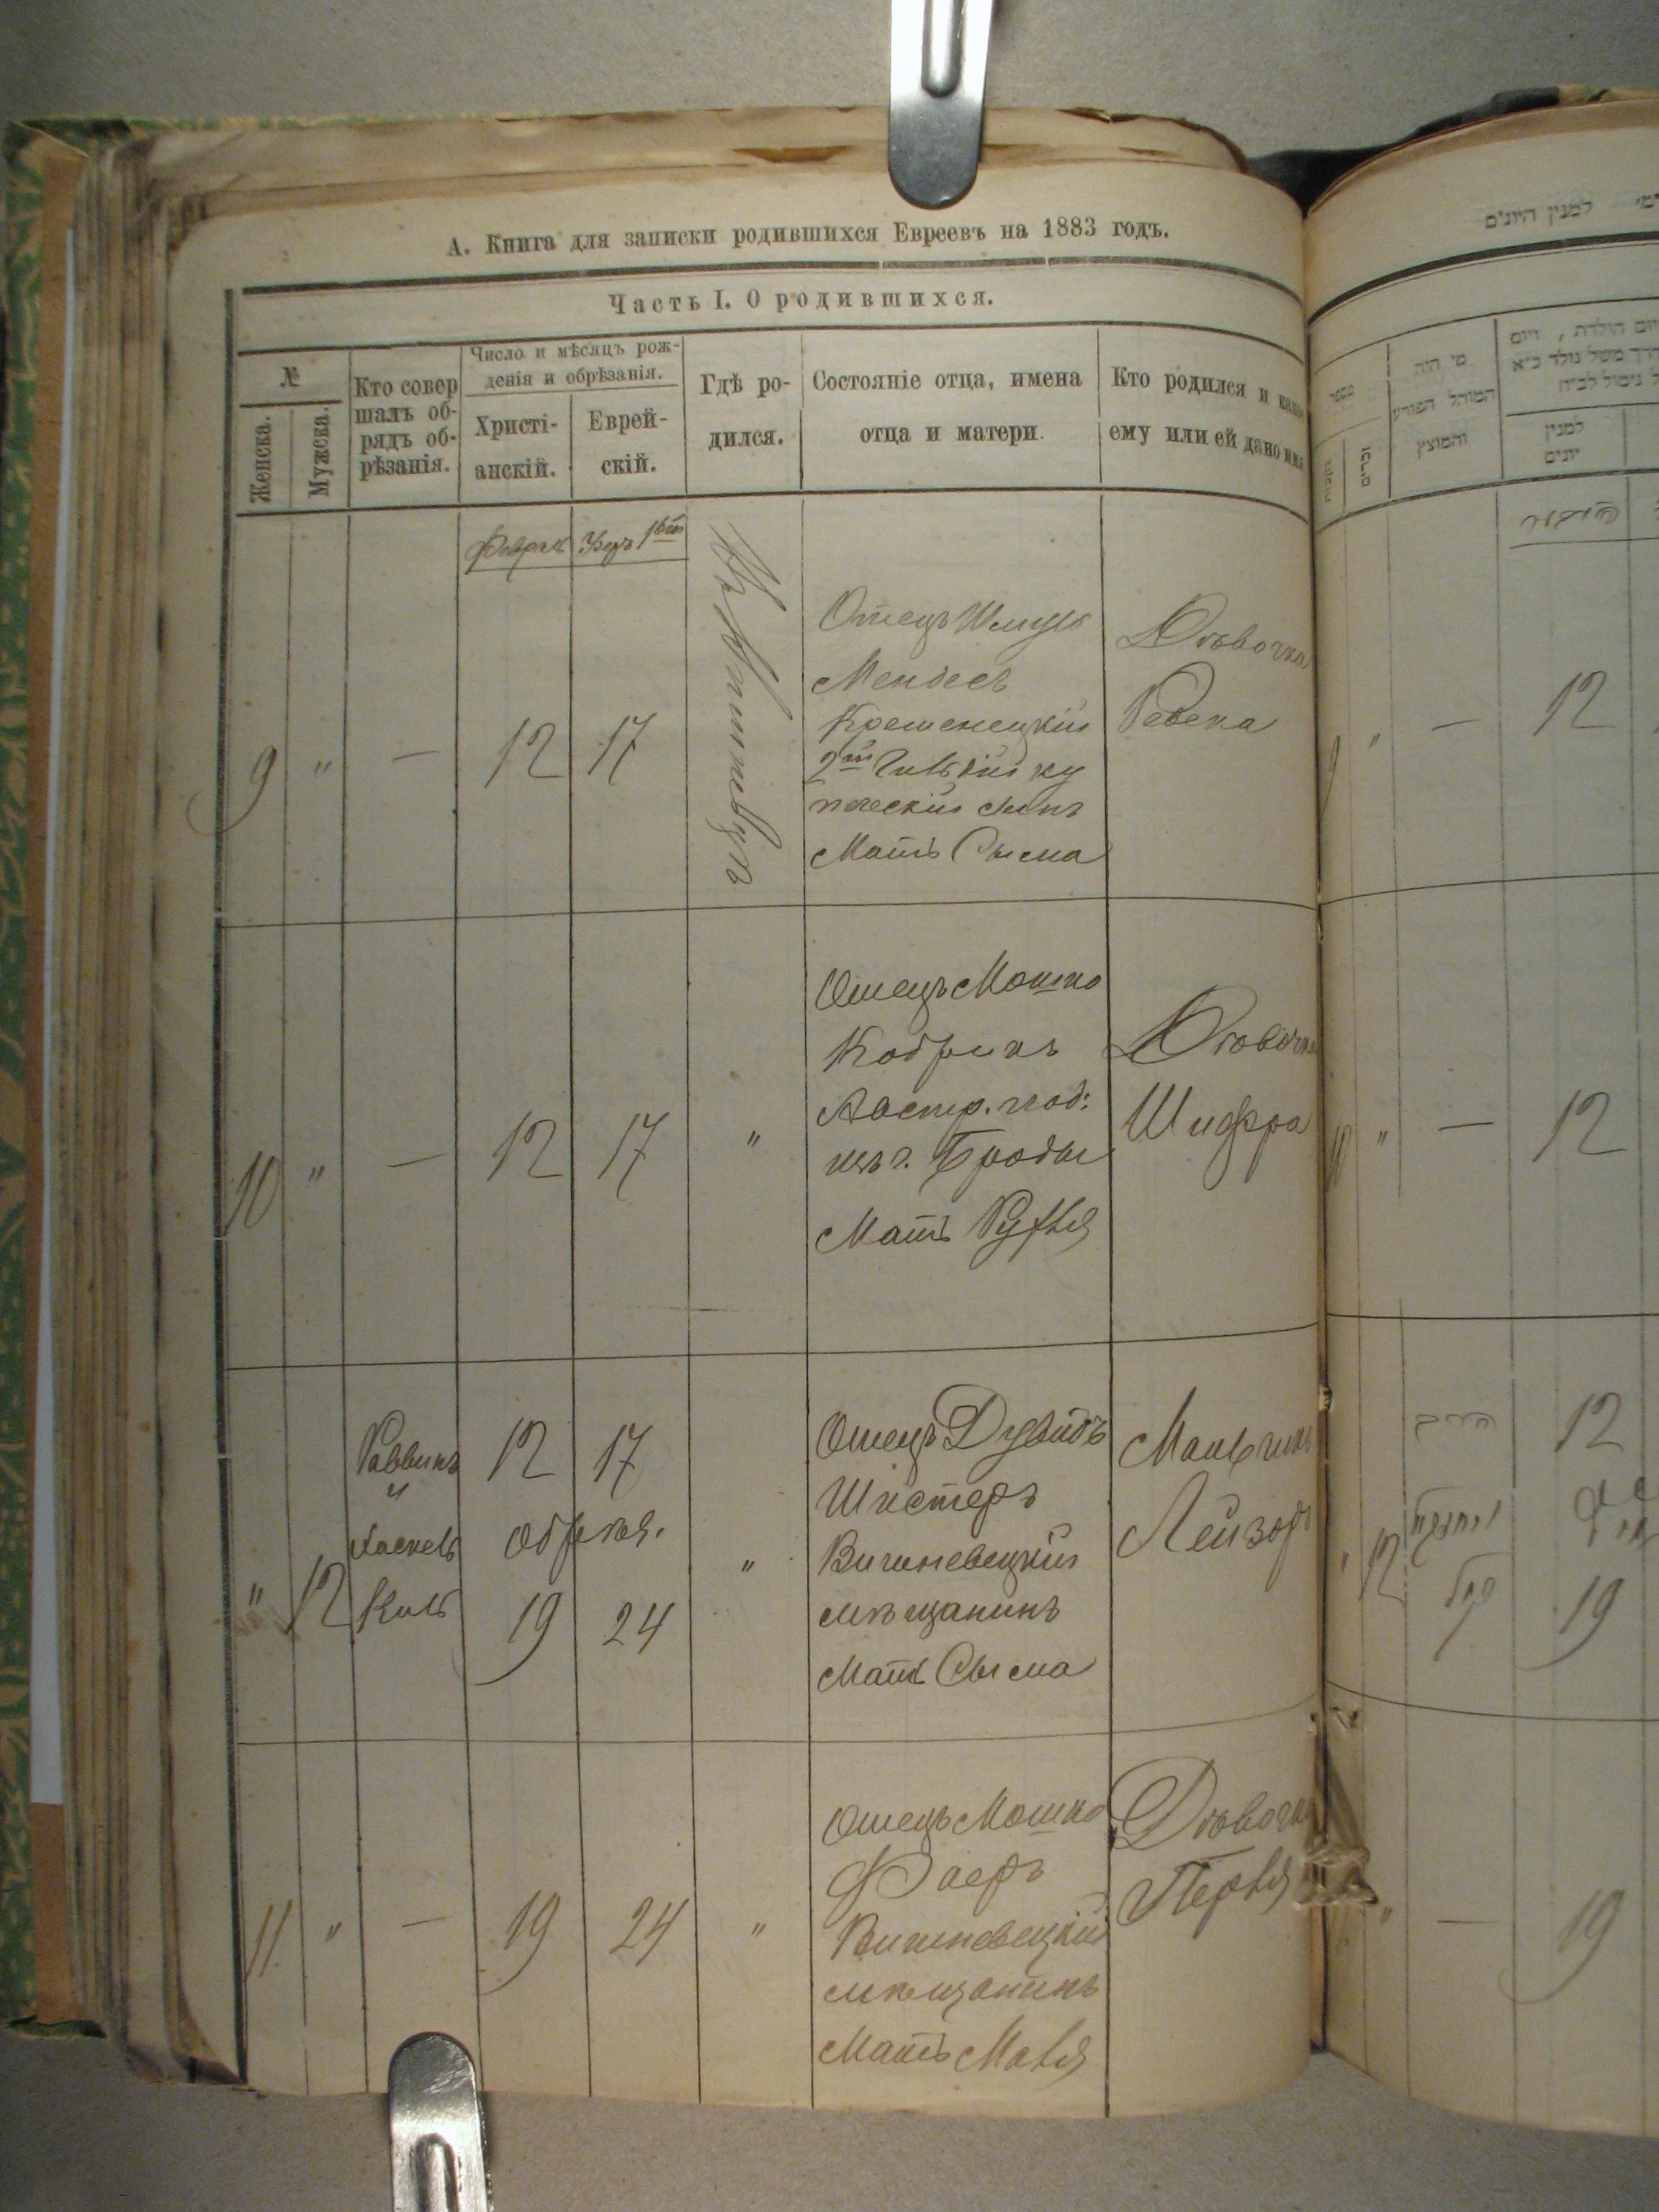 А. Книга для записки родившихся Евреевъ на 1883 годъ.
Часть I. О родившихся.
№
Женска.
Мужска.
Кто совер
шалъ об-
рядъ об-
рѣзанія.
Число и мѣсяцъ рож-
денія и обрѣзанія.
Христі-
анскій.
Еврей-
скій.
Гдѣ ро-
дился.
Состояніе отца, имена
отца и матери.
Кто родился и како
ему или ей дано имя
Февраль
1й
9 " — 12 17
Отецъ Шмуль
Мендель
Кременецкій
2й Гильдій ку
печескій сынъ
Мать Сыма
Дѣвочка
Ревека
10 " — 12 17 "
Отецъ Мошко
Кодрикъ
Австр. под:
изъ г. Броды
Мать Рухля
Дѣвочка
Шифра
" 12
Раввинъ
и
Хаскель
Киль
12 17
Обрѣз.
19 24
"
Отецъ Дувидъ
Шкстеръ
Вишневецкій
мѣщанинъ
Мать Сыма
Мальчикъ
Лейзоръ
11 " — 19 24 "
Отецъ Мошко
Фаеръ
Вишневецкій
мѣщанинъ
Мать Маля
Дѣвочка
Перля
למנין היונים
מספר
מי היה
המוהל הפורע
והמוצץ
יום הולדת , ויום
למנין
יונים
" — 12
" — 12
" 12
12
19
" — 19